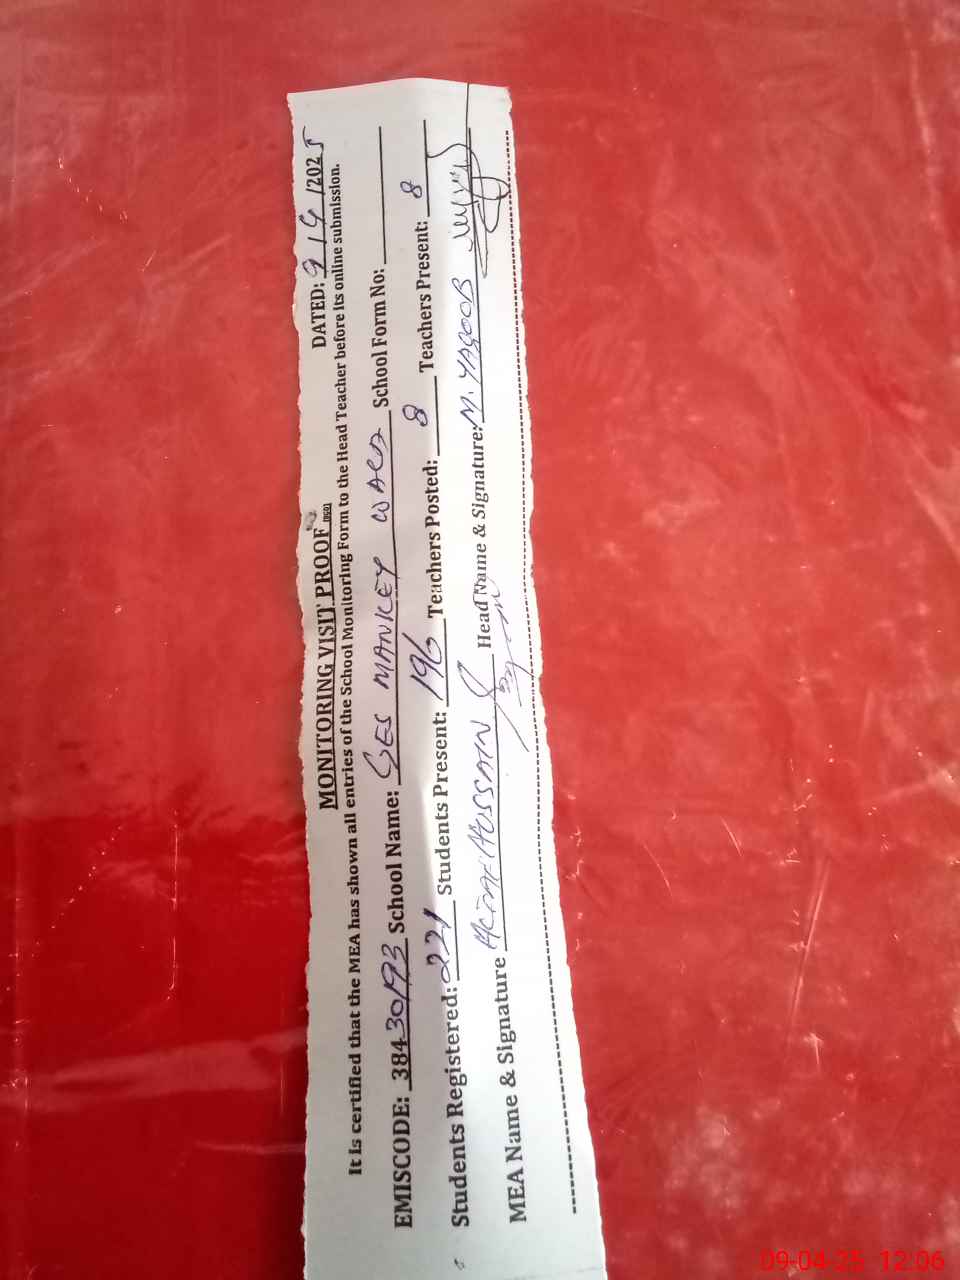 MONITORING VISIT PROOF
DATED: 9/4/2025
It is certified that the MEA has shown all entries of the School Monitoring Form to the Head Teacher before its online submission.
EMISCODE: 38430193 School Name: GES MANKEY WALA School Form No:
Students Registered: 221 Students Present: 196 Teachers Posted: 8 Teachers Present: 8
MEA Name & Signature HUSSAIN Head Name & Signature: M. YAQOOB
09-04-25 12:06